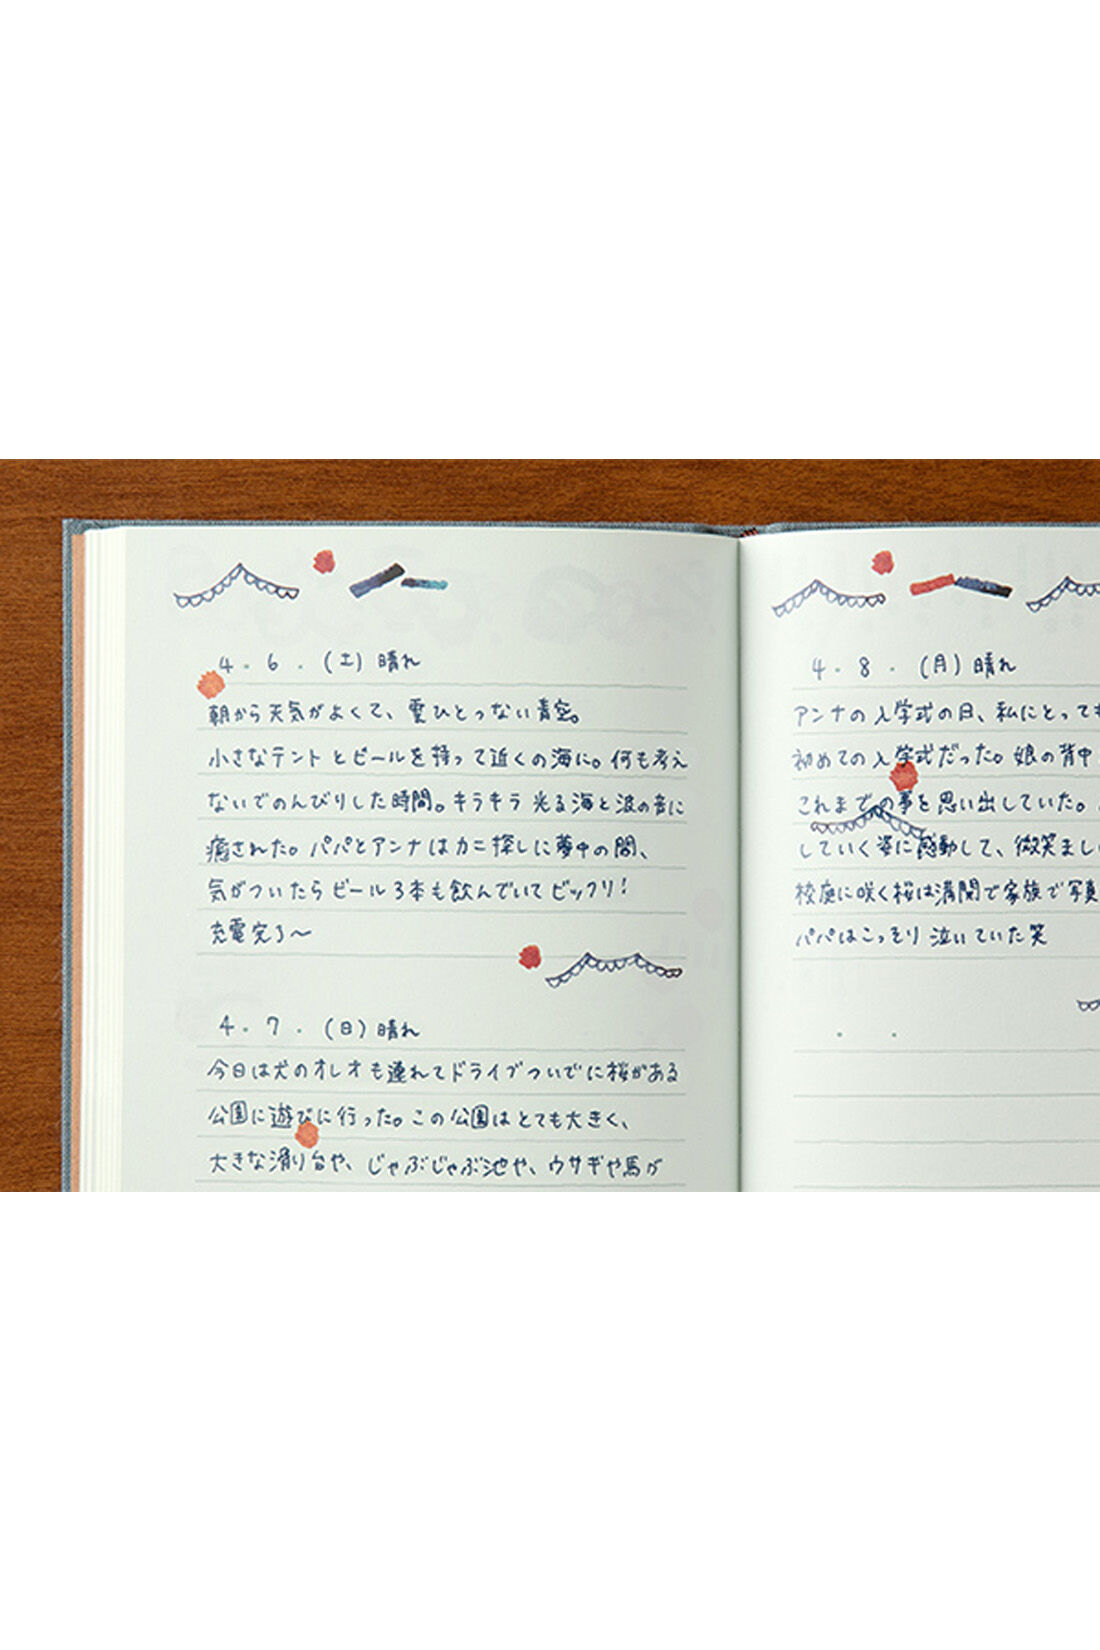 4.6.(土)晴れ
朝から天気がよくて、雲ひとつない青空。
小さなテントとビールを持って近くの海に。何も考え
ないでのんびりした時間。キラキラ光る海と波の音に
癒された。パパとアンナはカニ探しに夢中の間、
気がついたらビール3本も飲んでいてビックリ!
充電完了〜
4.7.(日)晴れ
今日は犬のオレオも連れてドライブついでに桜がある
公園に遊びに行った。この公園はとても大きく、
大きな滑り台や、じゃぶじゃぶ池や、ウサギや馬が
4.8.(月)晴れ
アンナの入学式の日、私にとっても
初めての入学式だった。娘の背中
これまでの事を思い出していた。
していく姿に感動して、微笑まし
校庭に咲く桜は満開で家族で写真
パパはこっそり泣いていた笑